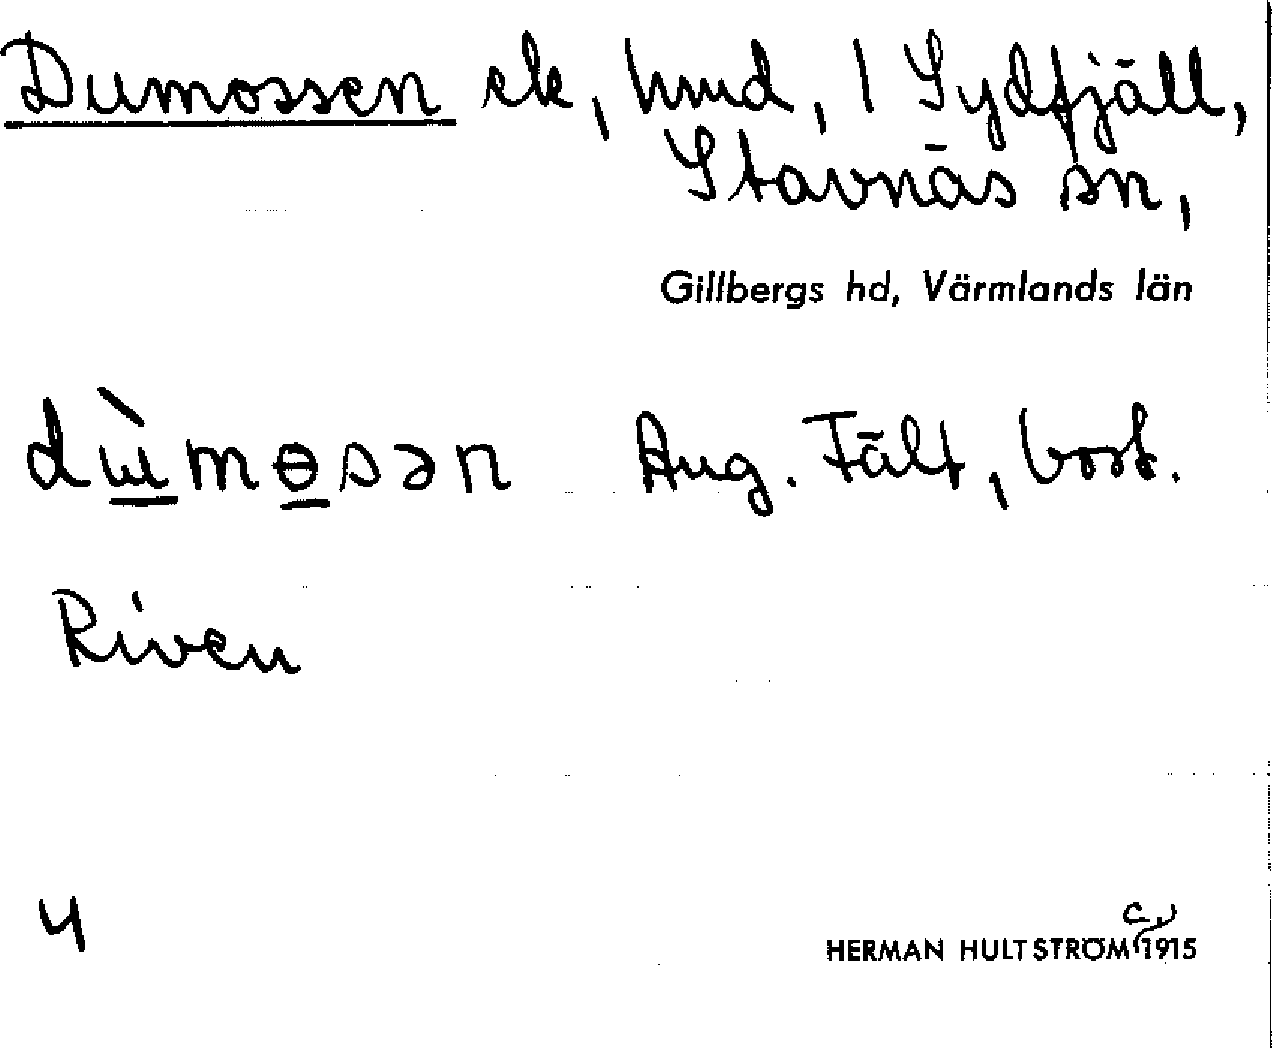 Dumossen ek, hmd, 1 Sydfjäll,
Stavnäs sn,
Gillbergs hd, Värmlands län
dɯ̀mɵsən Aug. Fält, bost.
Riven
4
HERMAN HULTSTRÖM 1915